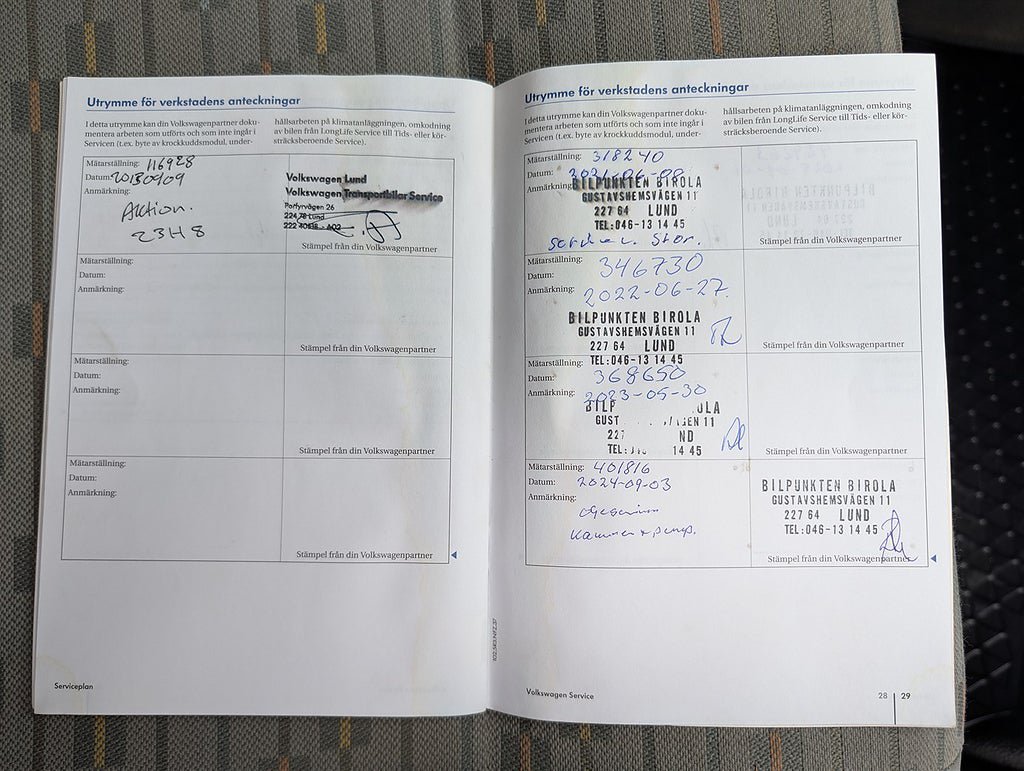 Utrymme för verkstadens anteckningar
I detta utrymme kan din Volkswagenpartner doku-
mentera arbeten som utförts och som inte ingår i
Servicen (t.ex. byte av krockkuddsmodul, under-
hållsarbeten på klimatanläggningen, omkodning
av bilen från LongLife Service till Tids- eller kör-
sträcksberoende Service).
Mätarställning: 116928
Datum: 20130909
Anmärkning:
Aktion.
23H8
Volkswagen Lund
Volkswagen Transportbilar Service
Porfyrvägen 26
224 78 Lund
Stämpel från din Volkswagenpartner
Mätarställning:
Datum:
Anmärkning:
Stämpel från din Volkswagenpartner
Mätarställning:
Datum:
Anmärkning:
Stämpel från din Volkswagenpartner
Mätarställning:
Datum:
Anmärkning:
Stämpel från din Volkswagenpartner
Serviceplan
102.5R3.NFZ.37
Utrymme för verkstadens anteckningar
I detta utrymme kan din Volkswagenpartner doku-
mentera arbeten som utförts och som inte ingår i
Servicen (t.ex. byte av krockkuddsmodul, under-
hållsarbeten på klimatanläggningen, omkodning
av bilen från LongLife Service till Tids- eller kör-
sträcksberoende Service).
Mätarställning: 318240
Datum: 2021-06-08
Anmärkning:
BILPUNKTEN BIROLA
GUSTAVSHEMSVÄGEN 11
227 64 LUND
TEL:046-13 14 45
Stor.
Stämpel från din Volkswagenpartner
Mätarställning: 346730
Datum:
Anmärkning: 2022-06-27
BILPUNKTEN BIROLA
GUSTAVSHEMSVÄGEN 11
227 64 LUND
TEL:046-13 14 45
Stämpel från din Volkswagenpartner
Mätarställning:
Datum: 368650
Anmärkning: 2023-05-30
BILP OLA
GUST VÄGEN 11
227 ND
TEL: 14 45
Stämpel från din Volkswagenpartner
Mätarställning: 401816
Datum: 2024-09-03
Anmärkning:
kammrem + pump.
BILPUNKTEN BIROLA
GUSTAVSHEMSVÄGEN 11
227 64 LUND
TEL:046-13 14 45
Stämpel från din Volkswagenpartner
Volkswagen Service
28 29